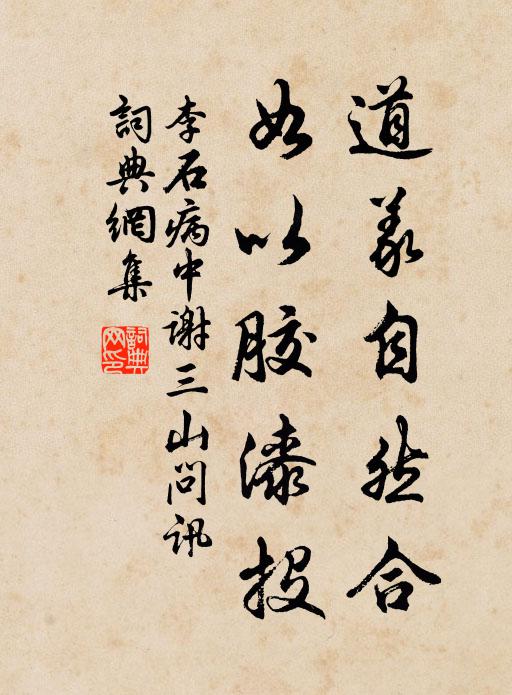 道義自然合
如以膠漆投
李石病中謝三山問訊
詞典網集
詞典網印